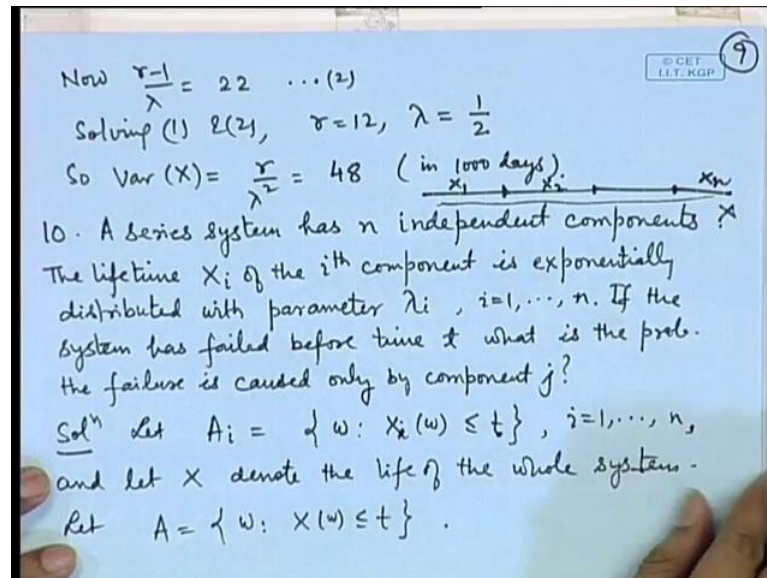 9
© CET
I.I.T. KGP
Now (r-1)/λ = 22 ...(2)
Solving (1) & (2), r = 12, λ = 1/2
So Var (X) = r/λ² = 48 (in 1000 days).
X₁ X₂ Xₙ
X
10. A series system has n independent components.
The lifetime Xᵢ of the iᵗʰ component is exponentially
distributed with parameter λᵢ, i=1,..., n. If the
system has failed before time t what is the prob.
the failure is caused only by component j?
Solⁿ Let Aᵢ = {ω: Xᵢ(ω) ≤ t}, i=1,..., n,
and let X denote the life of the whole system.
Let A = {ω: X(ω) ≤ t}.